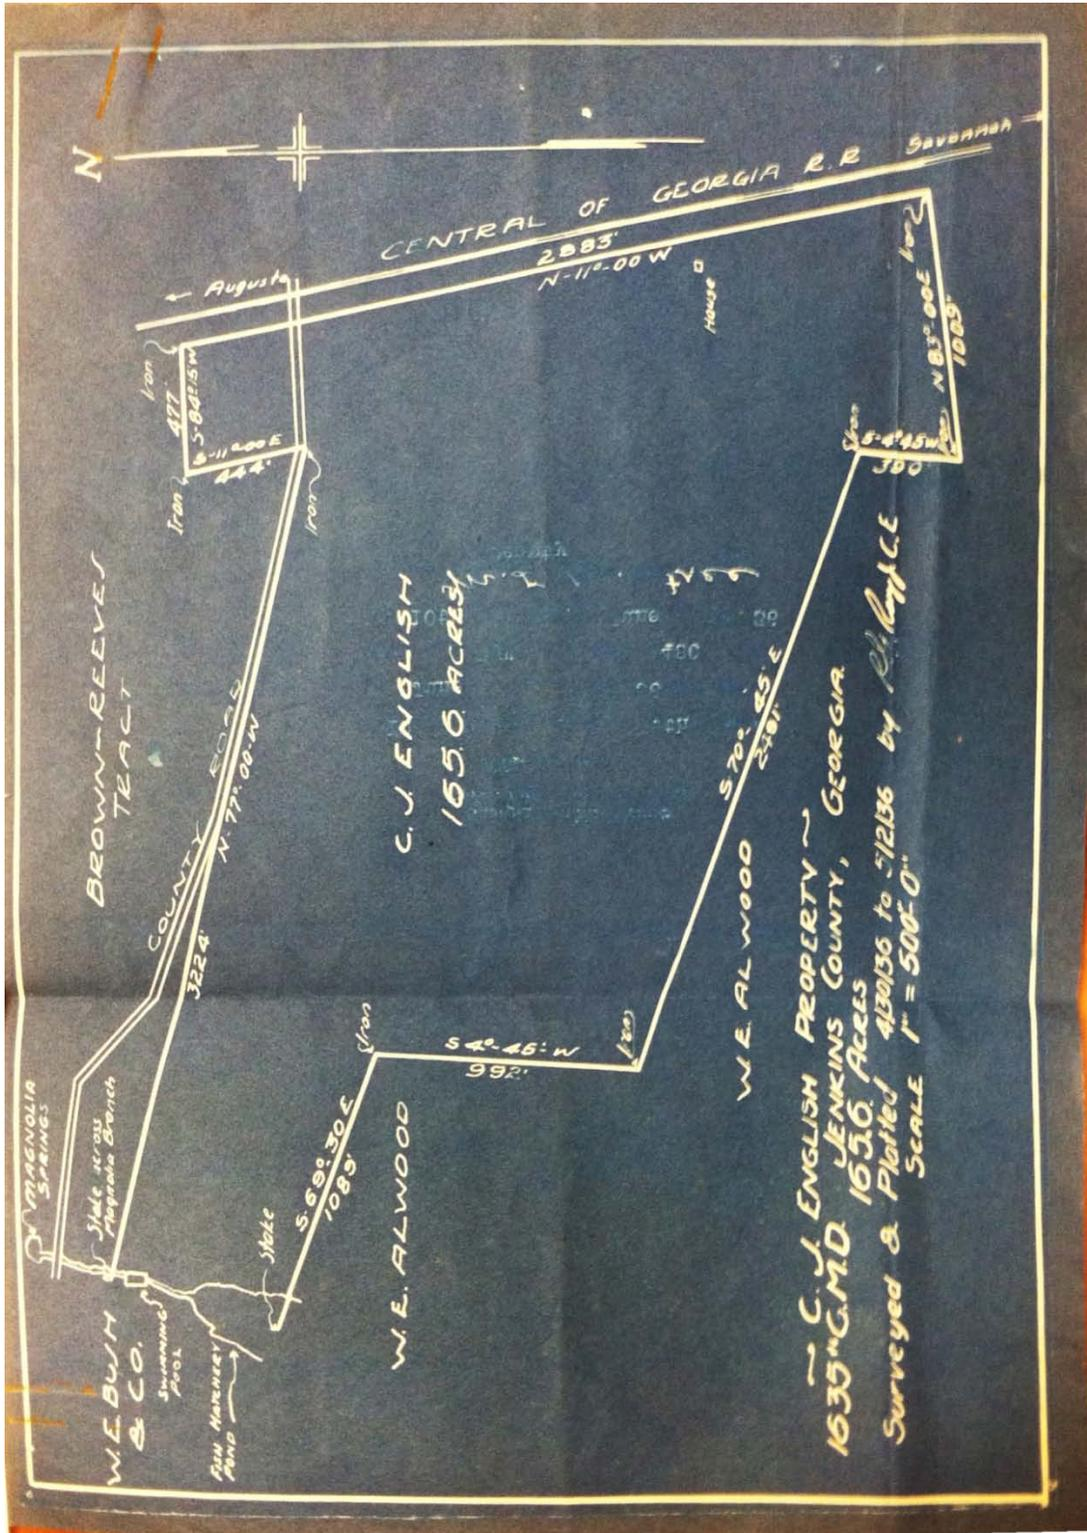 N
CENTRAL OF GEORGIA R.R
Savannah
← Augusta
2883'
N-11°-00 W
House
Iron
477'
S-84°15W
Iron
S-11°00E
444'
Iron
Iron
N 83°-00E
1009'
Iron
Iron
S-4°45W
390'
BROWN-REEVES
TRACT
COUNTY ROAD
N-77°-00-W
3224'
C. J. ENGLISH
165.6 ACRES
S 70° 45' E
W.E. ALWOOD
Iron
S 4°-45'-W
992'
Iron
S-69°-30 E
1089'
Stake
W.E. ALWOOD
MAGNOLIA
SPRINGS
Stake across
Magnolia Branch
W.E. BUSH
& CO.
SWIMMING
POOL
FISH HATCHERY
POND
~ C. J. ENGLISH PROPERTY ~
1635TH G.M.D JENKINS COUNTY, GEORGIA
165.6 ACRES
Surveyed & Platted 4/30/36 to 5/2/36 by C.E
SCALE 1" = 500'-0"